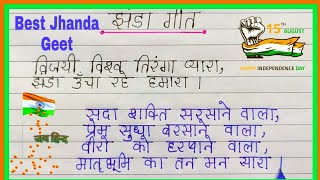 Best Jhanda
Geet
झंडा गीत
15TH
AUGUST
HAPPY INDEPENDENCE DAY
विजयी विश्व तिरंगा प्यारा,
झंडा ऊँचा रहे हमारा ।
सदा शक्ति सरसाने वाला,
प्रेम सुधा बरसाने वाला,
वीरों को हरषाने वाला,
मातृभूमि का तन मन सारा ।
जय हिन्द